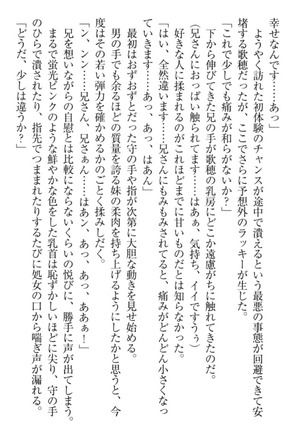 幸せなんです……あっ」
ようやく訪れた初体験のチャンスが途中で潰えるという最悪の事態が回避できて安
堵する歌穂だったが、ここでさらに予想外のラッキーが生じた。
「これで少しでも痛みが和らがないか？」
下から伸びてきた兄の手が歌穂の乳房にどこか遠慮がちに触れてきたのだ。
（兄さんにおっぱい触られてます……はぁ、気持ち、イイですぅ）
好きな人に揉まれるのがこれほどまでに甘いものだとは知らなかった。
「はい、全然違います……兄さんにもみもみされてると、痛みがどんどん小さくなっ
ていきます……あっ、あっ、はあん」
最初はおずおずとだった守の手や指が次第に大胆な動きを見せ始める。
男の手でも余るほどの質量を誇る妹の柔肉を持ち上げるようにしたかと思うと、今
度はその若い弾力を確かめるかのごとく揉みしだく。
「ン、ンン……兄さん、兄さぁん……はあン、あっ、あっ、ああぁ！」
兄を想いながらの自慰とは比較にならないくらいの悦びに、勝手に声が出てしまう。
まるで蛍光ピンクのような鮮やかな色をした乳首は恥ずかしいほどに尖り、守の手
のひらで潰されたり、指先でつままれたりするたびに処女の口から喘ぎ声が漏れる。
「どうだ、少しは違うか？」